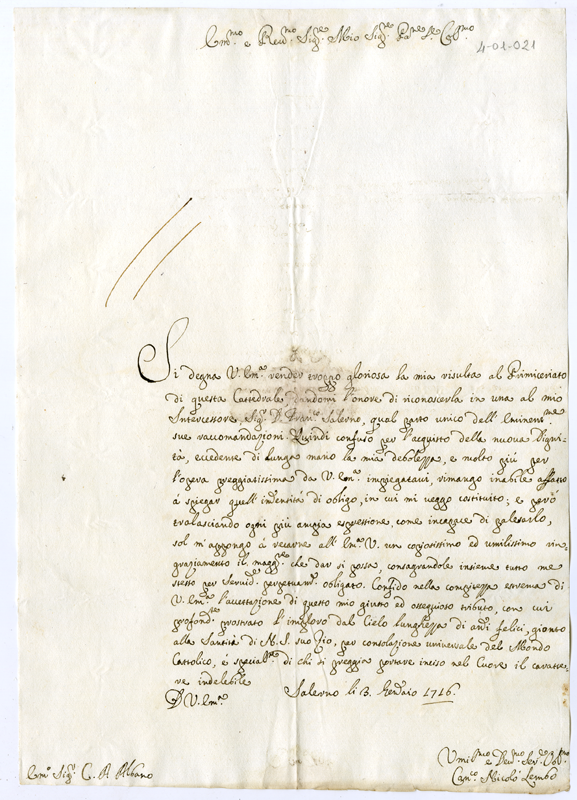 Em.mo e Reu.mo Sig.re Mio Sig.re Pa.ne Col.mo
4-01-021
Si degna V. Em.a render troppo gloriosa la mia risulta al Primiceriato
di questa Cattedrale dandomi l'onore di riconoscerla in una al mio
Intercessore, Sig.r D. Fran.co Salerno, qual parto unico dell' Eminent.me
sue raccomandazioni. Quindi confuso per l'acquisto della nuova Digni-
tà, eccedente di lunga mano la mia debolezza, e molto più per
l'opera preggiatissima da V. Em.a impiegatavi, rimango inabile affatto
à spiegar quell' intensità di obligo, in cui mi veggo costituito; e però
tralasciando ogni più ampia espressione, come incapace di palesarlo,
sol m'appongo à recarne all' Em.a V. un copiosissimo ed umilissimo rin-
graziamento il magg.re che dar si possa, consagrandole insieme tutto me
stesso per Seruid.re perpetuam.te obligato. Confido nella compitezza estrema di
V. Em.a l'accettazione di questo mio giusto ed ossequioso tributo, con cui
profond.te prostrato l'imploro dal Cielo lunghezza di anni felici, gionto
alla Santità di N. S. suo Zio, per consolazione universale del Mondo
Cattolico, e special.te di chi si preggia portare inciso nel Cuore il caratte-
re indelebile
D V. Em.a Salerno li 3. Gennaio 1716.
Em.o Sig.r C. Albano
Umil.mo e Deu.mo Ser.re Obl.mo
Can.co Nicolò Lembo